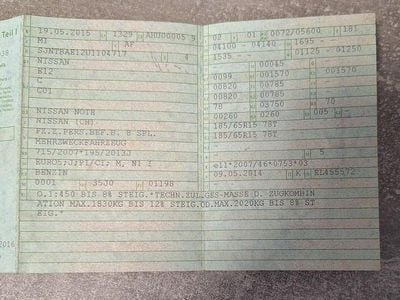 Teil I
19.05.2015 1329 AHU00005 9
M1 AF
SJNTBAE12U1104717 4
NISSAN
E12
C
C01
NISSAN NOTE
NISSAN (CH)
FZ.Z.PERS.BEF.B. 8 SPL.
MEHRZWECKFAHRZEUG
715/2007*195/2013J
EURO5;J;PI/CI; M, N1 I
BENZIN
0001 35J0 01198
02 01 0072/05600 181
04100 - 04140 1695 -
1535 - - 01125 - 01250
00045
0099 001570 001570
00820 00785 -
00820 00785 -
78 03750 70
00260 00260 005 -
185/65R15 78T
185/65R15 78T
- 5
e11*2007/46*0753*03
09.05.2014 K RL455572
O.1:450 BIS 8% STEIG.*TECHN.ZUL.GES-MASSE D. ZUGKOMBIN
ATION MAX.1830KG BIS 12% STEIG.OD.MAX.2020KG BIS 8% ST
EIG.*
2016